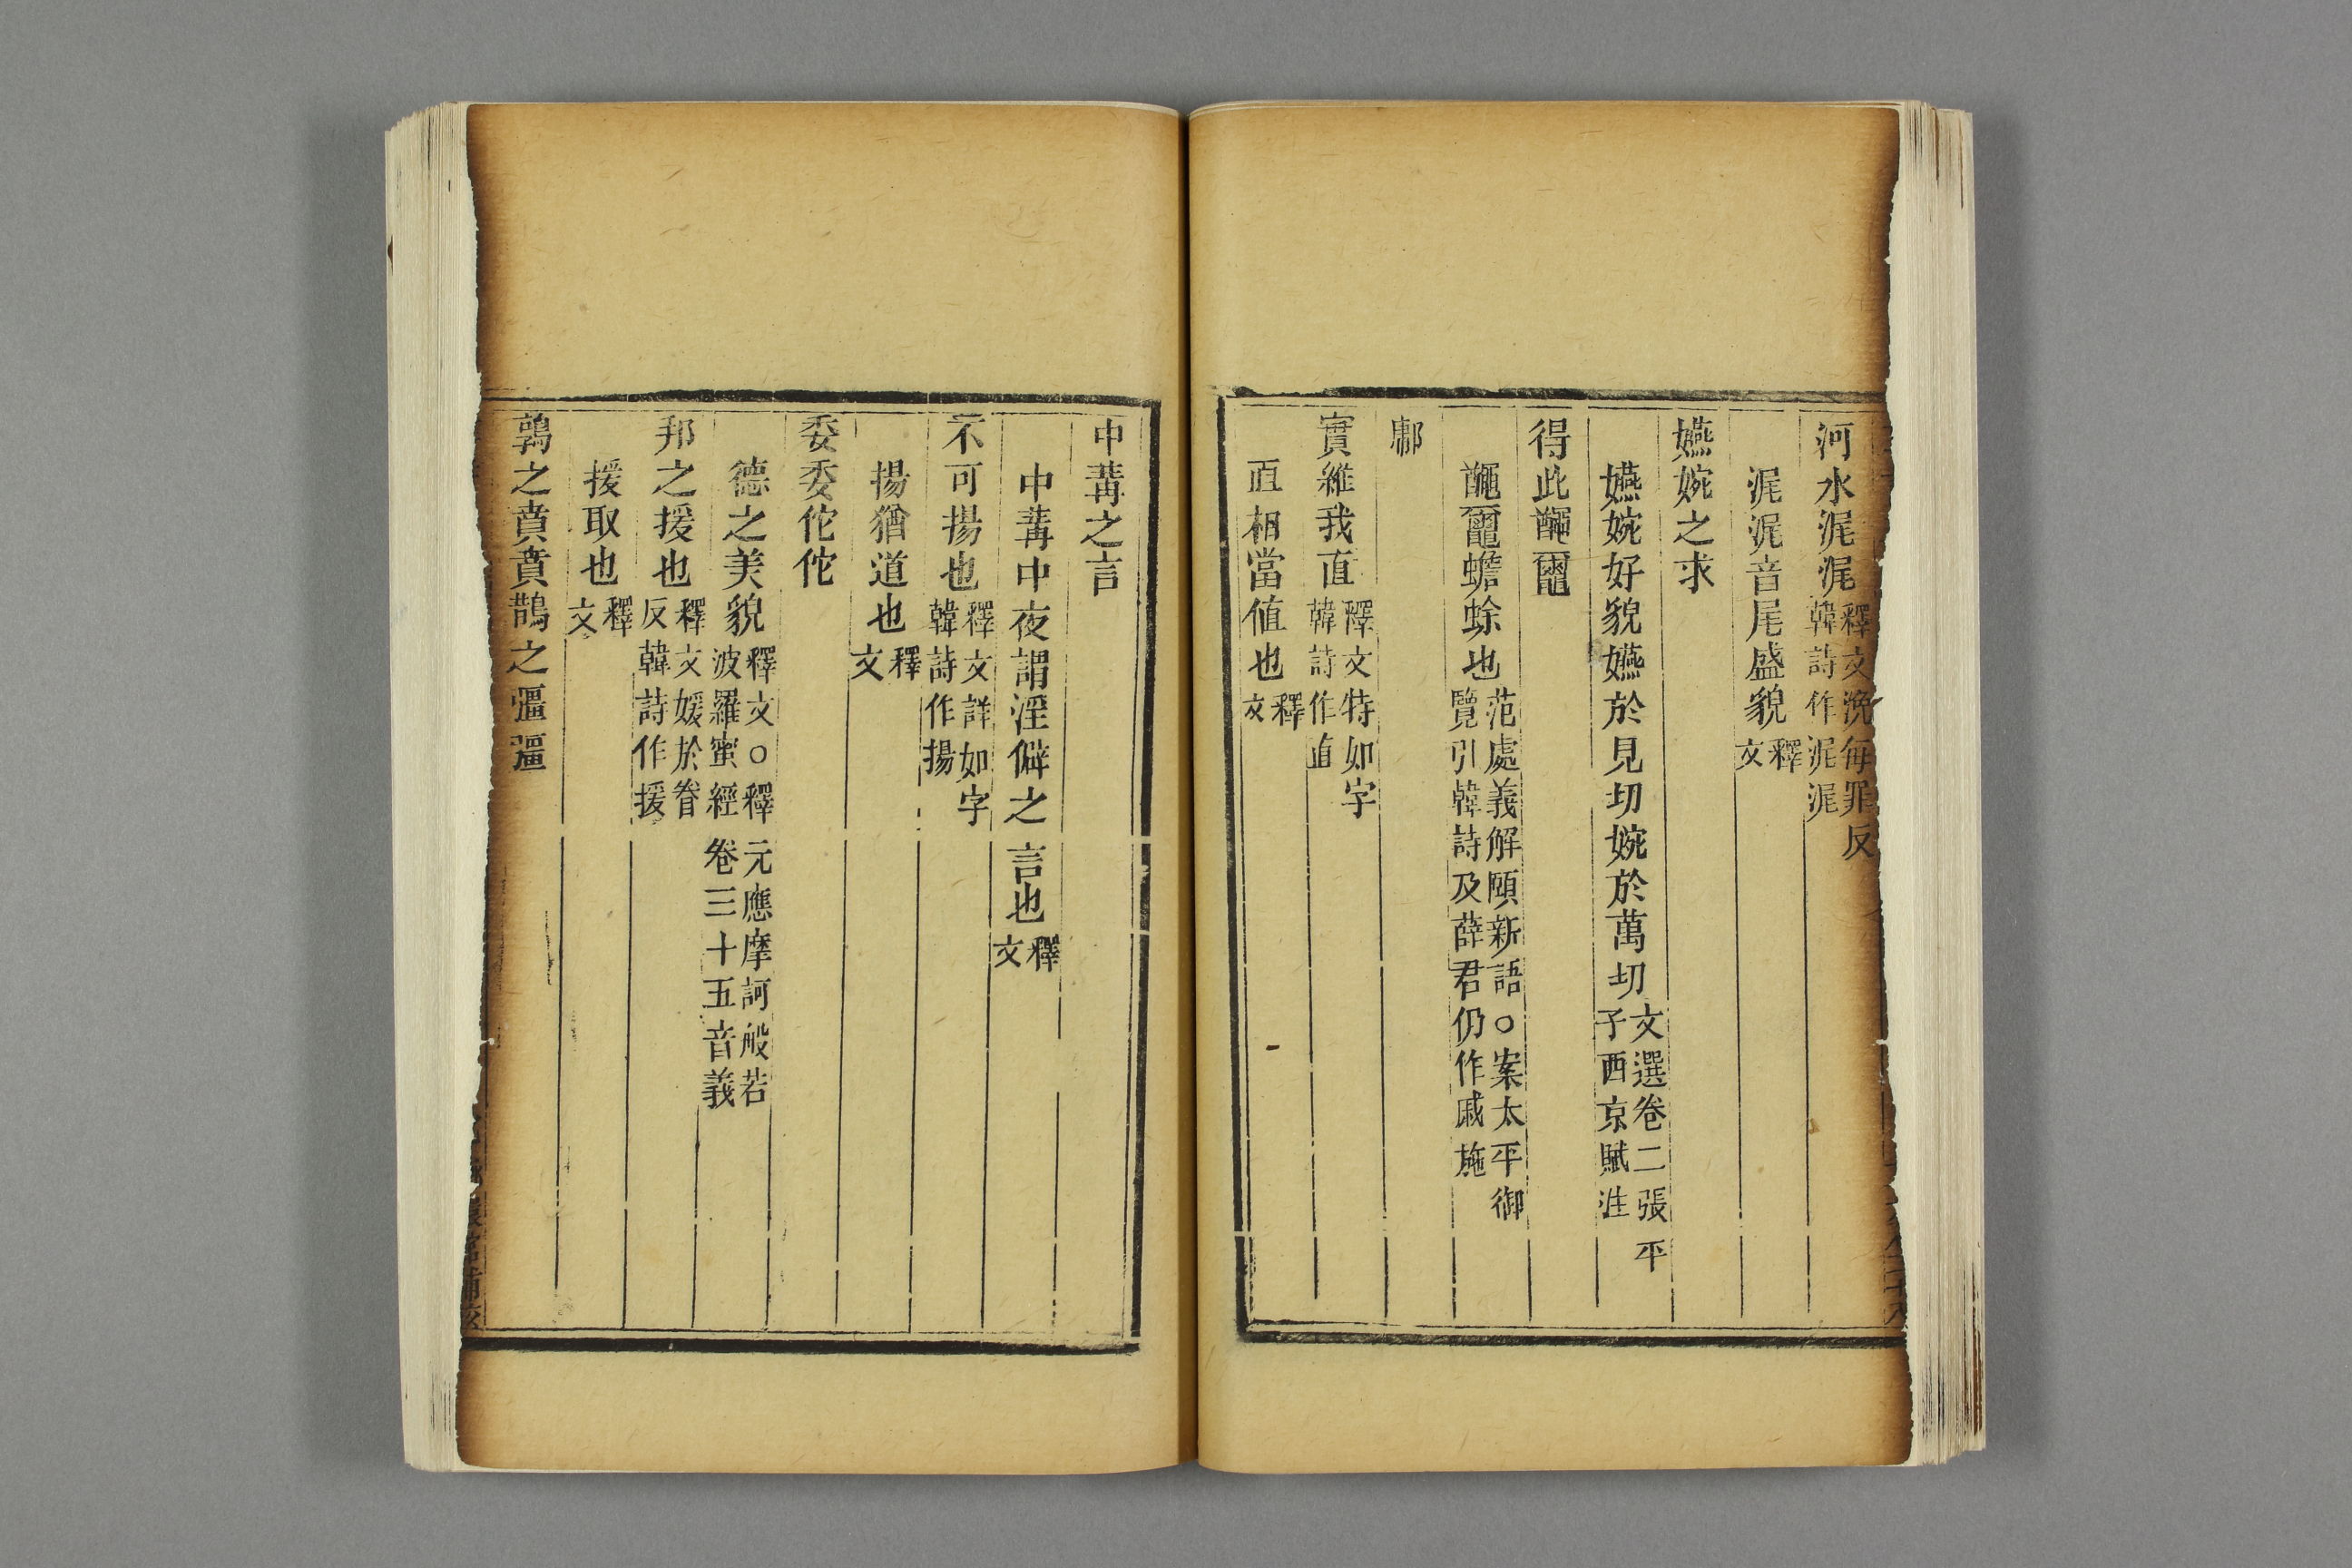 河水浘浘釋文浼每罪反
韓詩作浘浘
浘浘音尾盛貌釋
文
嬿婉之求
嬿婉好貌嬿於見切婉於萬切文選卷二張平
子西京賦注
得此𪓰𪓿
𪓰𪓿蟾蜍也范處義解頤新語○案太平御
覽引韓詩及薛君仍作戚施
鄘
實維我直釋文特如字
韓詩作直
直相當值也釋
文
中冓之言
中冓中夜謂淫僻之言也釋
文
不可揚也釋文詳如字
韓詩作揚
揚猶道也釋
文
委委佗佗
德之美貌釋文○釋元應摩訶般若
波羅蜜經卷三十五音義
邦之援也釋文媛於眷
反韓詩作援
援取也釋
文
鶉之賁賁鵲之彊彊